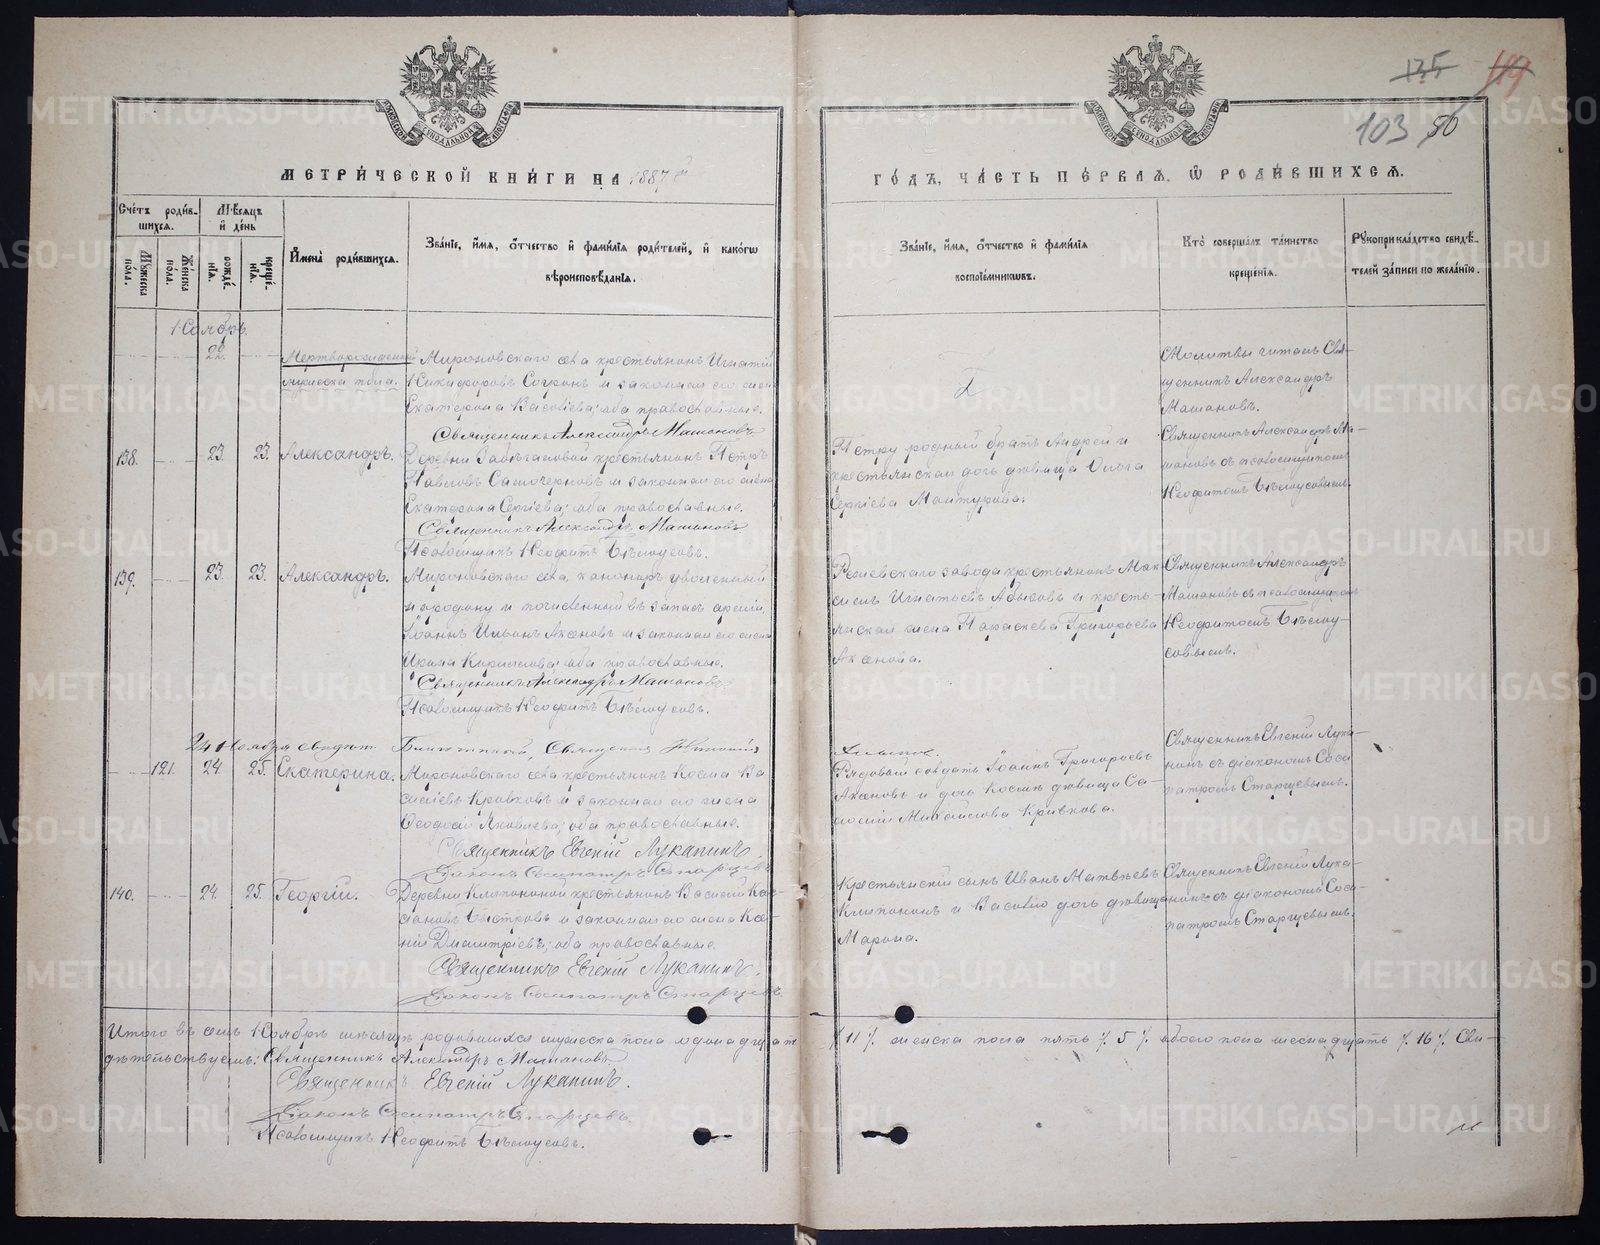 125 119
103 50
МЕТРИ́ЧЕСКОЙ КНИ́ГИ НА 1887 й
ГО́ДЪ, ЧА́СТЬ ПЕ́РВАЯ, Ѿ РОДИ́ВШИХСЯ.
Сче́тъ роди́вшихся.
Мꙋ́жеска по́ла.
Же́нска по́ла.
Мѣ́сяцъ и де́нь
рожде́нїя.
креще́нїя.
И҆мена̀ роди́вшихся.
Зва́нїе, и҆́мя, ѻ҆́тчество и҆ фами́лїя роди́телей, и҆ како́гѡ вѣроисповѣ́данїя.
Зва́нїе, и҆́мя, ѻ҆́тчество и҆ фами́лїя воспрїе́мникѡвъ.
Кто̀ соверша́лъ та́инство креще́нїя.
Рꙋкоприкла́дство свидѣ́телей за́писи по жела́нїю.
Ноябрь.
22.
Мертворожденный
мужеска пола.
Мироновскаго села крестьянинъ Игнатій
Никифоровъ Согринъ и законная его жена
Екатерина Васильева; оба православные.
Священникъ Александръ Машановъ
Молитвы читалъ Свя-
щенникъ Александръ
Машановъ.
138. 23. 23. Александръ.
крестьянинъ Петръ
Павловъ Самочерновъ и законная его жена
Екатерина Сергіева; оба православные.
Священникъ Александръ Машановъ
Псаломщикъ Неофитъ Бѣлоусовъ.
Петру родный братъ Андрей и
крестьянская дочь дѣвица Ольга
Сергіева Мантурова.
Священникъ Александръ Ма-
шановъ съ псаломщикомъ
Неофитомъ Бѣлоусовымъ.
139. 23. 23. Александръ.
Мироновскаго села, канониръ уволенный
на родину и причисленный въ запасъ арміи,
Іоаннъ Ильинъ Аксеновъ и законная его жена
Ирина Кирилова; оба православные.
Священникъ Александръ Машановъ
Псаломщикъ Неофитъ Бѣлоусовъ.
Режевскаго завода крестьянинъ Мак-
симъ Игнатьевъ Абысовъ и кресть-
янская жена Параскева Григорьева
Аксенова.
Священникъ Александръ
Машановъ съ псаломщикомъ
Неофитомъ Бѣлоу-
совымъ.
24 Ноября свидѣт. Священникъ
121. 24. 25. Екатерина.
Мироновскаго села крестьянинъ Косма Ва-
сильевъ Кривковъ и законная его жена
Ѳеодосія Яковлева; оба православные.
Священникъ Евгеній Лукапинъ.
Діаконъ Сосипатръ Старцевъ
Рядовый солдатъ Іоаннъ Григорьевъ
Аксеновъ и дочь Косьмы дѣвица Са-
Михайлова Кривкова.
Священникъ Евгеній Лука-
пинъ съ діакономъ Соси-
патромъ Старцевымъ.
140. 24. 25. Георгій.
Деревни Клипониной крестьянинъ Василій
Быстровъ и законная его жена Ксе-
нія Димитріева; оба православные.
Священникъ Евгеній Лукапинъ.
Діаконъ Сосипатръ Старцевъ
Крестьянскій сынъ Иванъ Матвѣевъ
Клипонинъ и Василію дочь дѣвица
Марина.
Священникъ Евгеній Лука-
пинъ съ діакономъ Соси-
патромъ Старцевымъ.
Итого въ семъ Ноябрѣ мѣсяцѣ родившихся мужеска пола одинадцать
/ 11 /. женска пола пять /. 5 /. обоего пола шеснадцать /. 16 /. Сви-
дѣтельствуемъ: Священникъ Александръ Машановъ
Священникъ Евгеній Лукапинъ.
Діаконъ Сосипатръ Старцевъ.
Псаломщикъ Неофитъ Бѣлоусовъ.
METRIKI.GASO-URAL.RU